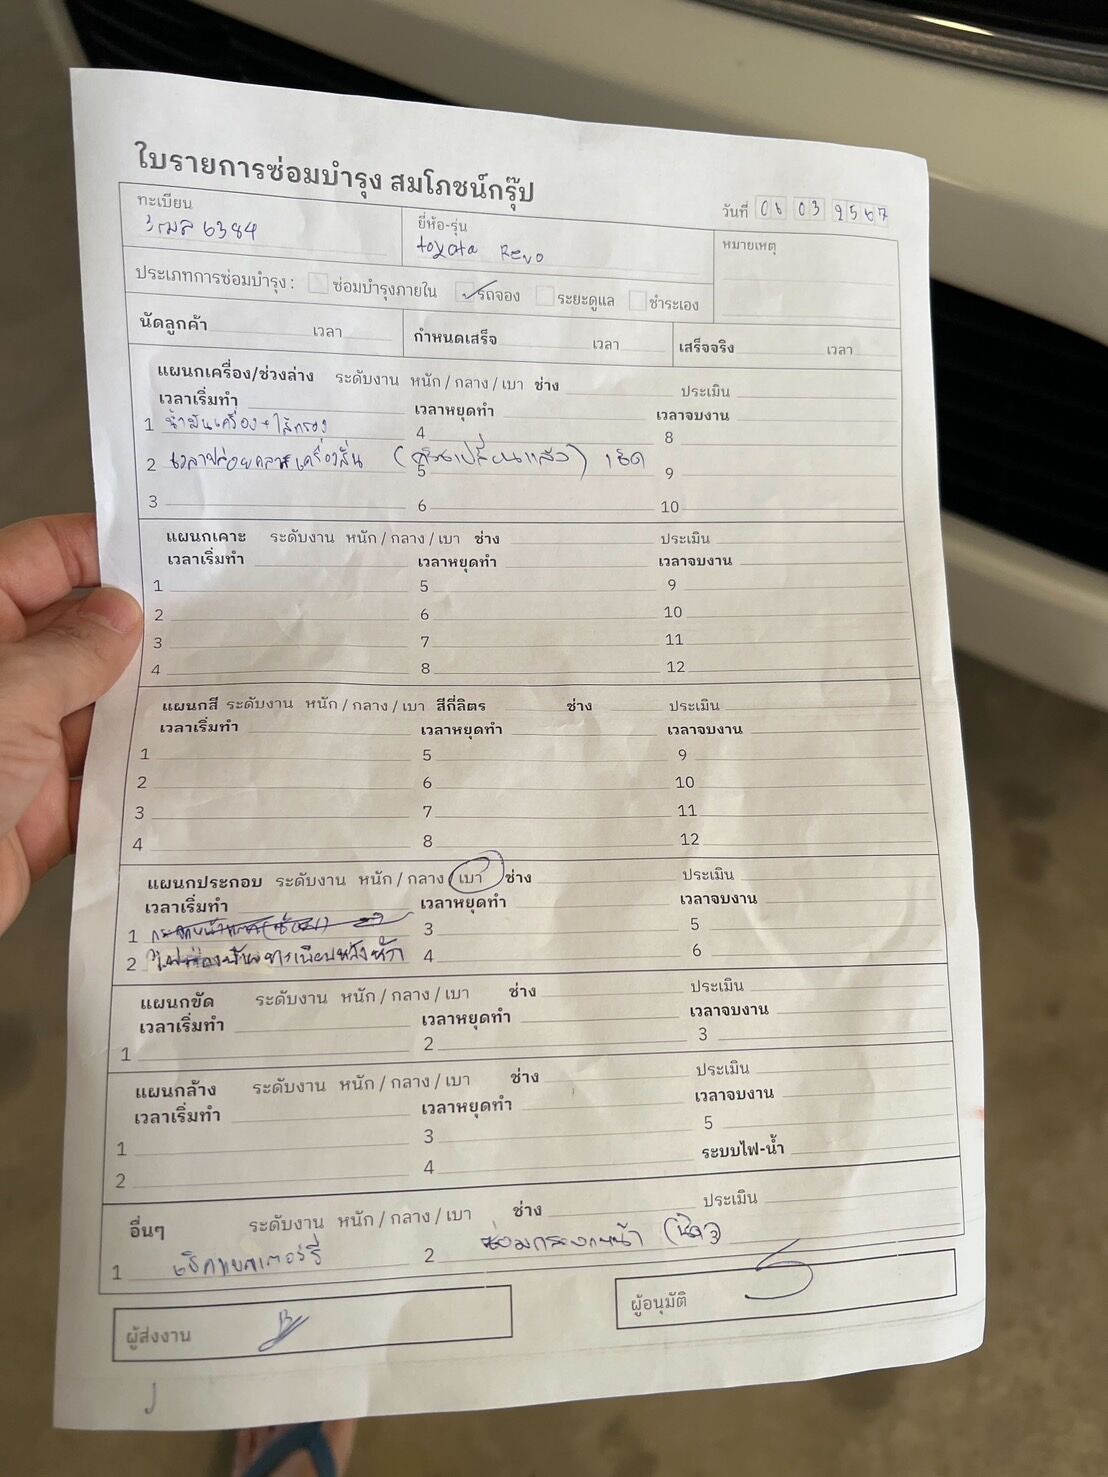 ใบรายการซ่อมบำรุง สมโภชน์กรุ๊ป
วันที่ 06 03 2567
ทะเบียน
6384
ยี่ห้อ-รุ่น
toyota Revo
หมายเหตุ
ประเภทการซ่อมบำรุง : ซ่อมบำรุงภายใน รถจอง ระยะดูแล ชำระเอง
นัดลูกค้า เวลา กำหนดเสร็จ เวลา เสร็จจริง เวลา
แผนกเครื่อง/ช่วงล่าง ระดับงาน หนัก / กลาง / เบา ช่าง ประเมิน
เวลาเริ่มทำ เวลาหยุดทำ เวลาจบงาน
1 น้ำมันเครื่อง + ไส้กรอง 4 8
2 เวลาปล่อยคลัทเครื่องสั่น (เปลี่ยนแล้ว) เช็ค 5 9
3 6 10
แผนกเคาะ ระดับงาน หนัก / กลาง / เบา ช่าง ประเมิน
เวลาเริ่มทำ เวลาหยุดทำ เวลาจบงาน
1 5 9
2 6 10
3 7 11
4 8 12
แผนกสี ระดับงาน หนัก / กลาง / เบา สีกี่ลิตร ช่าง ประเมิน
เวลาเริ่มทำ เวลาหยุดทำ เวลาจบงาน
1 5 9
2 6 10
3 7 11
4 8 12
แผนกประกอบ ระดับงาน หนัก / กลาง / เบา ช่าง ประเมิน
เวลาเริ่มทำ เวลาหยุดทำ เวลาจบงาน
1 3 5
2 ไฟส่องป้ายทะเบียนหลัง 4 6
แผนกขัด ระดับงาน หนัก / กลาง / เบา ช่าง ประเมิน
เวลาเริ่มทำ เวลาหยุดทำ เวลาจบงาน
1 2 3
แผนกล้าง ระดับงาน หนัก / กลาง / เบา ช่าง ประเมิน
เวลาเริ่มทำ เวลาหยุดทำ เวลาจบงาน
1 3 5
2 4 ระบบไฟ-น้ำ
อื่นๆ ระดับงาน หนัก / กลาง / เบา ช่าง ประเมิน
1 เช็คแบตเตอร์รี่ 2 ซ่อมกระจกหน้า
ผู้ส่งงาน
ผู้อนุมัติ